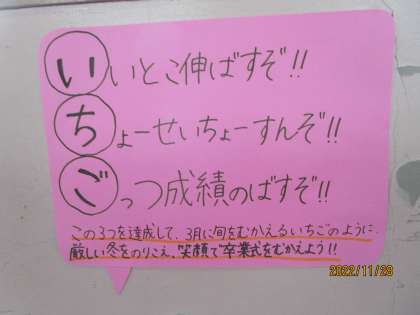 いいとこ伸ばすぞ!!
ちょーせいちょーすんぞ!!
ごっつ成績のばすぞ!!
この3つを達成して、3月に旬をむかえるいちごのように
厳しい冬をのりこえ、笑顔で卒業式をむかえよう!!
2022/11/28